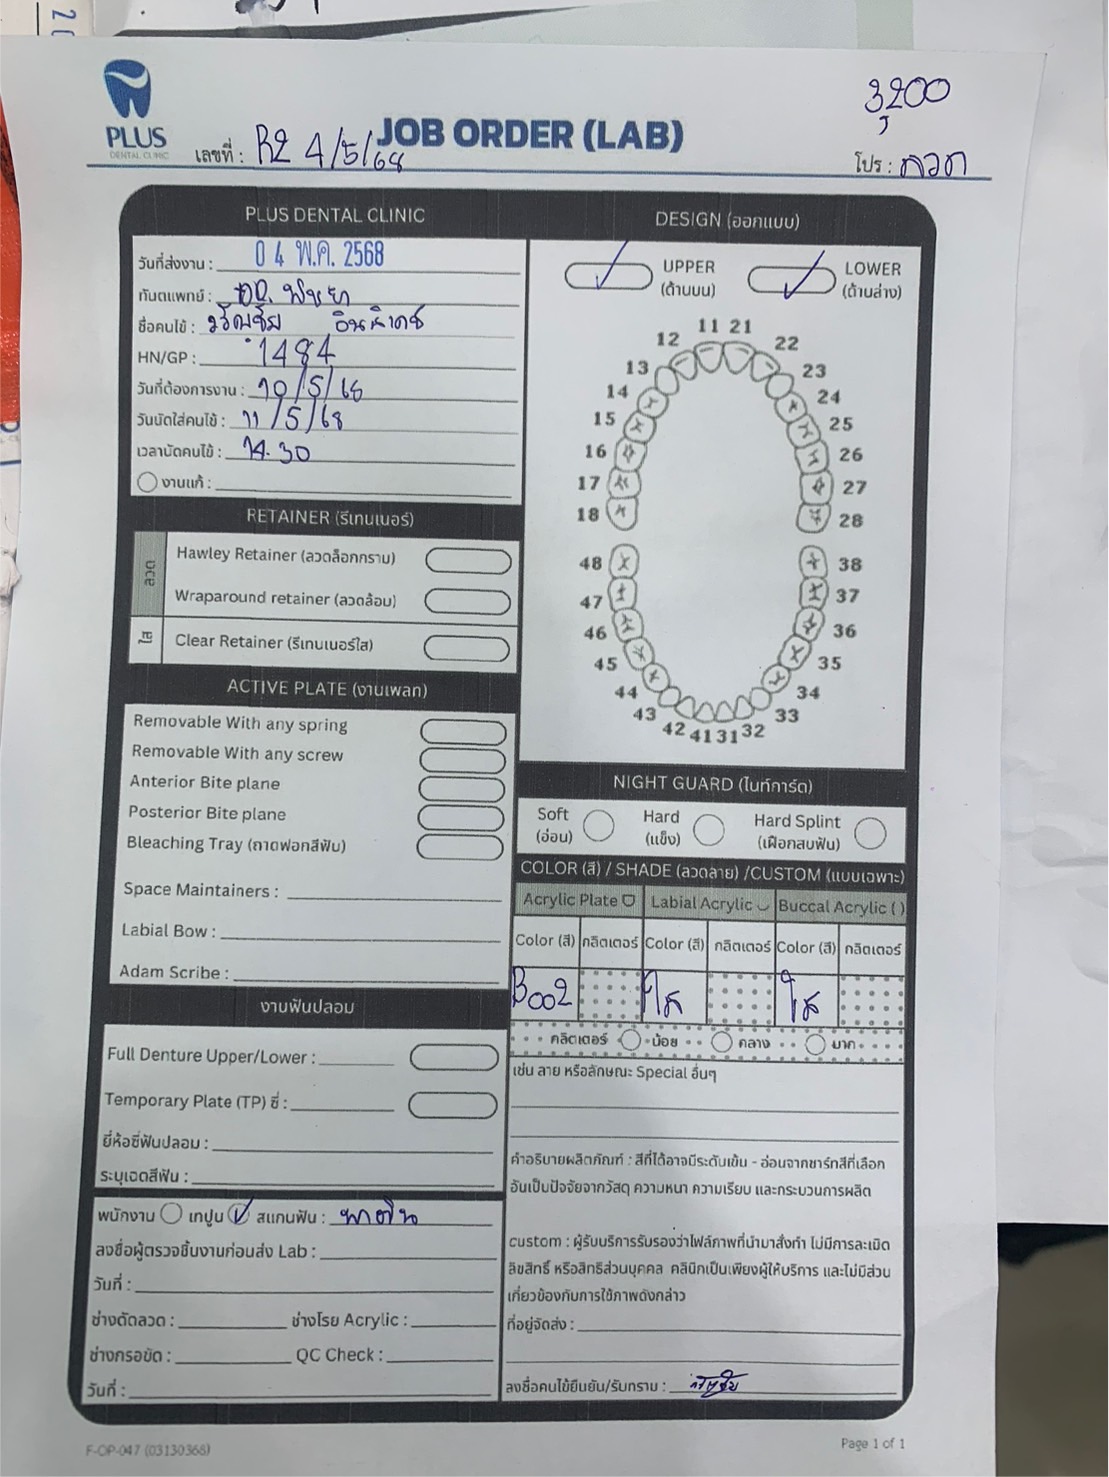 3,200
PLUS
DENTAL CLINIC
JOB ORDER (LAB)
เลขที่ : R2 4/5/68
โปร : ลวด
PLUS DENTAL CLINIC
วันที่ส่งงาน : 0 4 พ.ค. 2568
ทันตแพทย์ :
ชื่อคนไข้ :
HN/GP : 1484
วันที่ต้องการงาน : 10/5/68
วันนัดใส่คนไข้ : 11/5/68
เวลานัดคนไข้ : 14.30
งานแก้ :
RETAINER (รีเทนเนอร์)
ลวด
Hawley Retainer (ลวดล็อกกราม)
Wraparound retainer (ลวดล้อม)
ใส
Clear Retainer (รีเทนเนอร์ใส)
ACTIVE PLATE (งานเพลท)
Removable With any spring
Removable With any screw
Anterior Bite plane
Posterior Bite plane
Bleaching Tray (ถาดฟอกสีฟัน)
Space Maintainers :
Labial Bow :
Adam Scribe :
งานฟันปลอม
Full Denture Upper/Lower :
Temporary Plate (TP) ซี่ :
ยี่ห้อซี่ฟันปลอม :
ระบุเฉดสีฟัน :
พนักงาน เทปูน สแกนฟัน :
ลงชื่อผู้ตรวจชิ้นงานก่อนส่ง Lab :
วันที่ :
ช่างดัดลวด : ช่างโรย Acrylic :
ช่างกรอขัด : QC Check :
วันที่ :
DESIGN (ออกแบบ)
UPPER
(ด้านบน)
LOWER
(ด้านล่าง)
11 21
12 22
13 23
14 24
15 25
16 26
17 27
18 28
48 38
47 37
46 36
45 35
44 34
43 33
42 41 31 32
NIGHT GUARD (ไนท์การ์ด)
Soft
(อ่อน)
Hard
(แข็ง)
Hard Splint
(เฝือกสบฟัน)
COLOR (สี) / SHADE (ลวดลาย) /CUSTOM (แบบเฉพาะ)
Acrylic Plate Labial Acrylic Buccal Acrylic ( )
Color (สี) กลิตเตอร์ Color (สี) กลิตเตอร์ Color (สี) กลิตเตอร์
B002 ใส ใส
กลิตเตอร์ น้อย กลาง มาก
เช่น ลาย หรือลักษณะ Special อื่นๆ
คำอธิบายผลิตภัณฑ์ : สีที่ได้อาจมีระดับเข้ม - อ่อนจากชาร์ทสีที่เลือก
อันเป็นปัจจัยจากวัสดุ ความหนา ความเรียบ และกระบวนการผลิต
custom : ผู้รับบริการรับรองว่าไฟล์ภาพที่นำมาสั่งทำ ไม่มีการละเมิด
ลิขสิทธิ์ หรือสิทธิส่วนบุคคล คลินิกเป็นเพียงผู้ให้บริการ และไม่มีส่วน
เกี่ยวข้องกับการใช้ภาพดังกล่าว
ที่อยู่จัดส่ง :
ลงชื่อคนไข้ยืนยัน/รับทราบ :
F-OP-047 (03130368)
Page 1 of 1